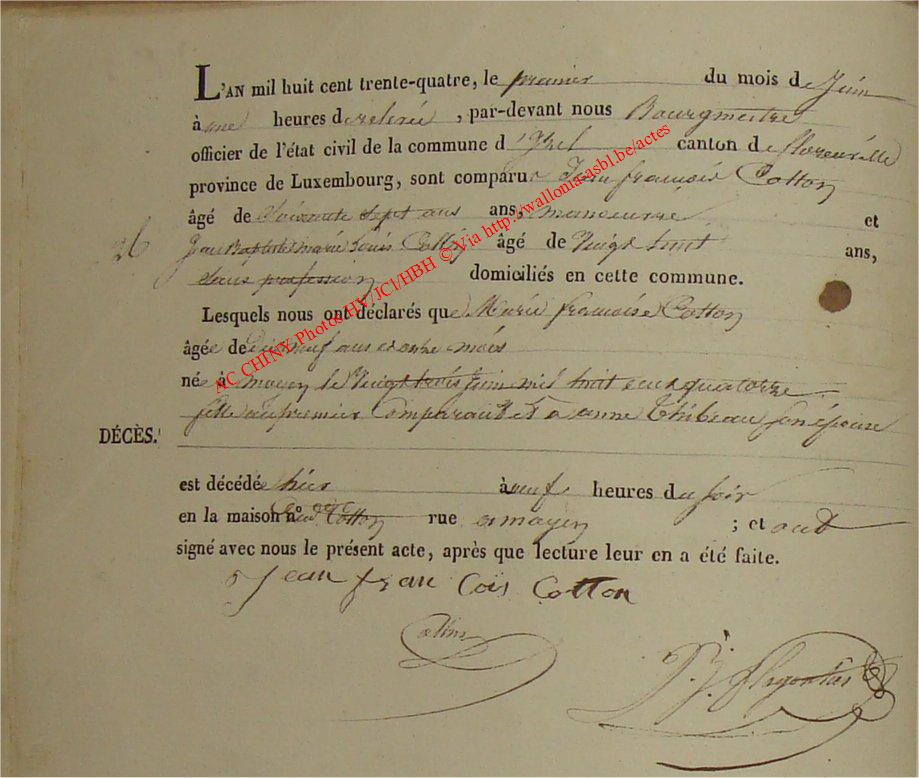 L'AN mil huit cent trente-quatre, le premier du mois de Juin
à une heures de relevée, par-devant nous Bourgmestre
officier de l'état civil de la commune d'Izel canton de florenville
province de Luxembourg, sont comparur Jean françois Cotton
âgé de Soixante Sept ans ans, manoeuvre et
26
Jean Baptiste marie Louis Collin âgé de Vingt huit ans,
Sans profession domiciliés en cette commune.
Lesquels nous ont déclarés que Marie françoise Cotton
âgée de dix neuf ans et onze mois
née à moyen le Vingt trois Juin mil huit cent quatorze
fille au premier Comparant et à anne Thibeau son épouse
DÉCÈS.
est décédée hier à neuf heures du soir
en la maison n° Cotton rue a moyen ; et ont
signé avec nous le présent acte, après que lecture leur en a été faite.
Jean fran Cois Cotton
Collin
AC CHINY Photos HY/JCl/HBH © Via http://wallonia-asbl.be/actes